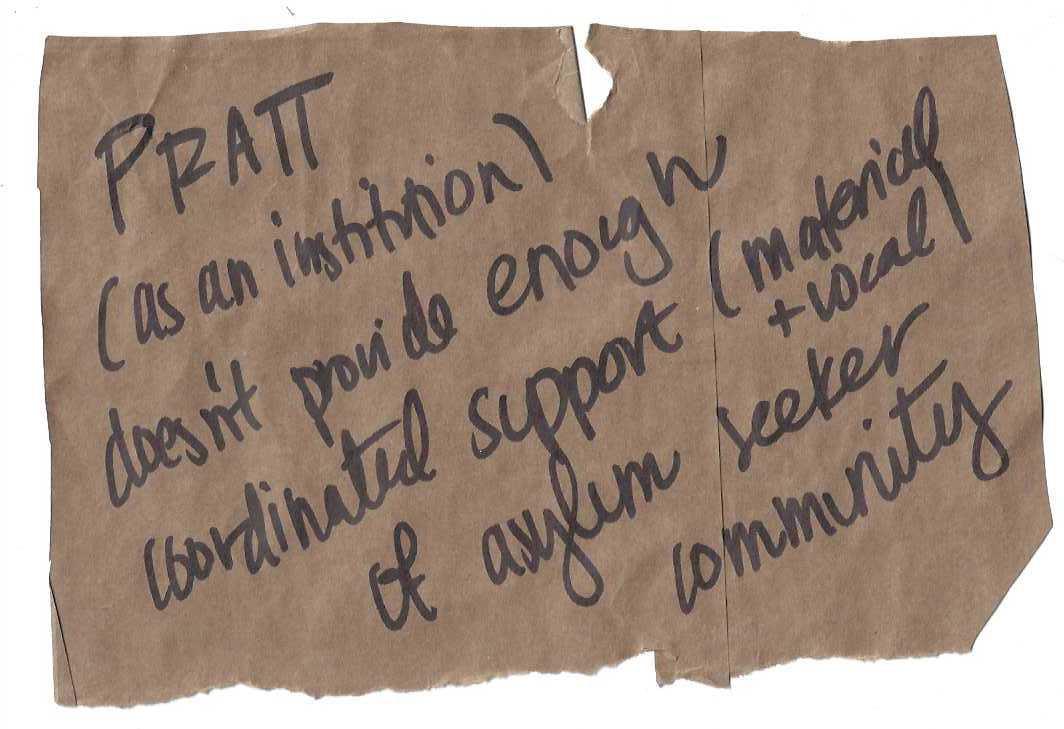 PRATT
(as an institution)
doesn't provide enough
coordinated support (material
+ vocal)
of asylum seeker
community